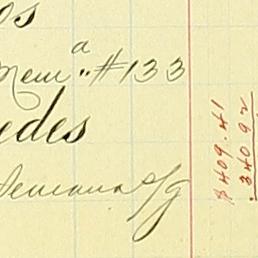 os
Mema " #133
edes
Semana s/g
$409.41
340 92